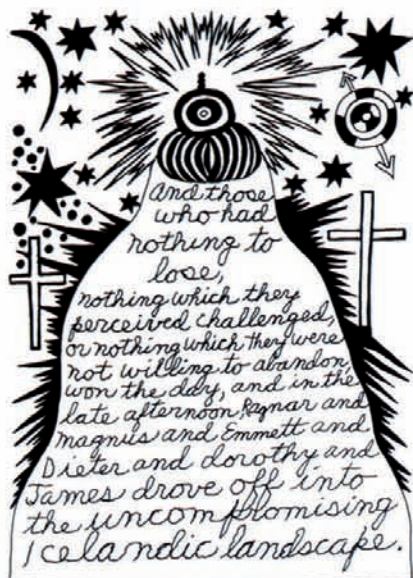 And those
who had
nothing to
lose,
nothing which they
perceived challenged,
or nothing which they were
not willing to abandon,
won the day, and in the
late afternoon, Ragnar and
magnus and Emmett and
Dieter and dorothy and
James drove off into
the uncompromising
Icelandic landscape.